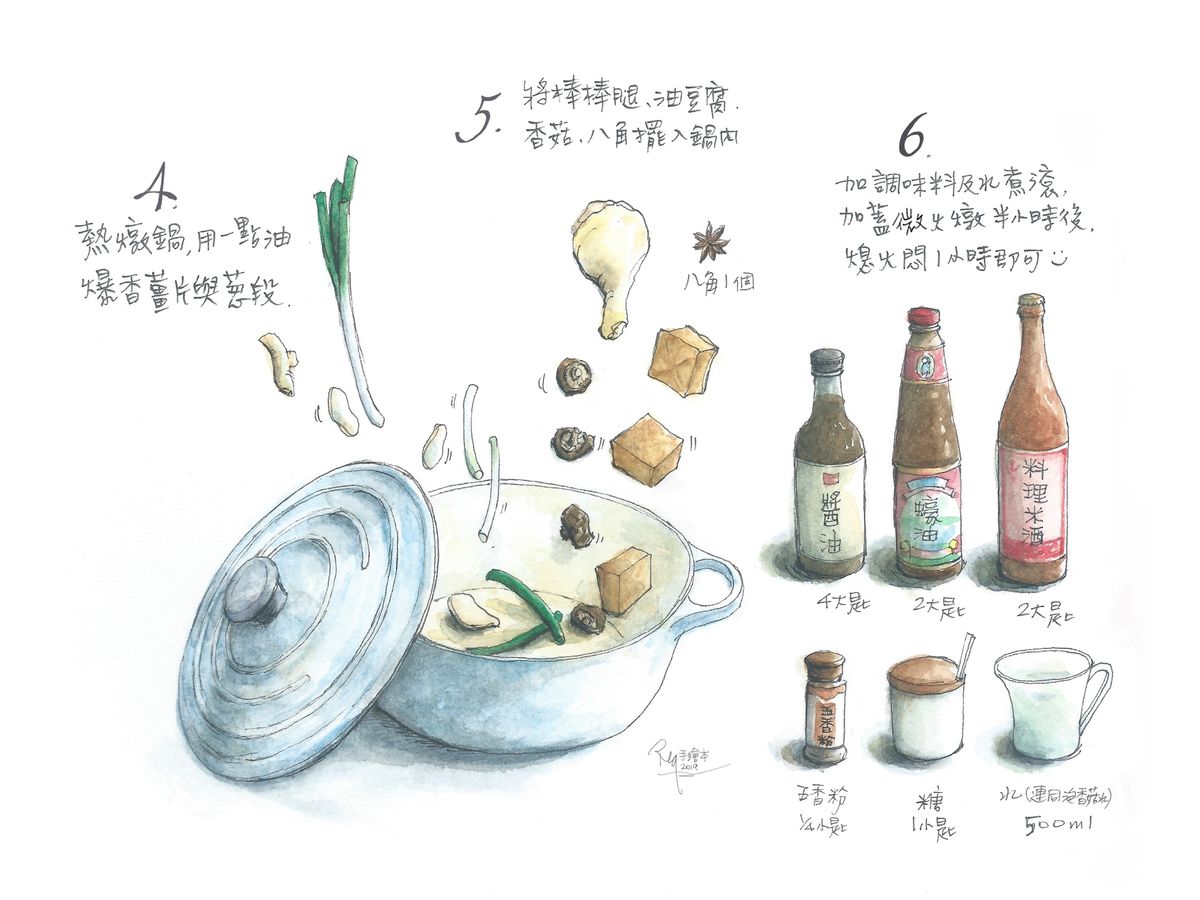 4.
熱燉鍋,用一點油
爆香薑片與蔥段.
5.
將棒棒腿、油豆腐.
香菇、八角擺入鍋內
八角1個
6.
加調味料及水煮滾,
加蓋微火燉半小時後,
熄火悶1小時即可
醬油
4大匙
蠔油
2大匙
料理米酒
2大匙
五香粉
五香粉
1/4小匙
糖
1小匙
水(連同泡香菇水)
500ml
手繪本
2019